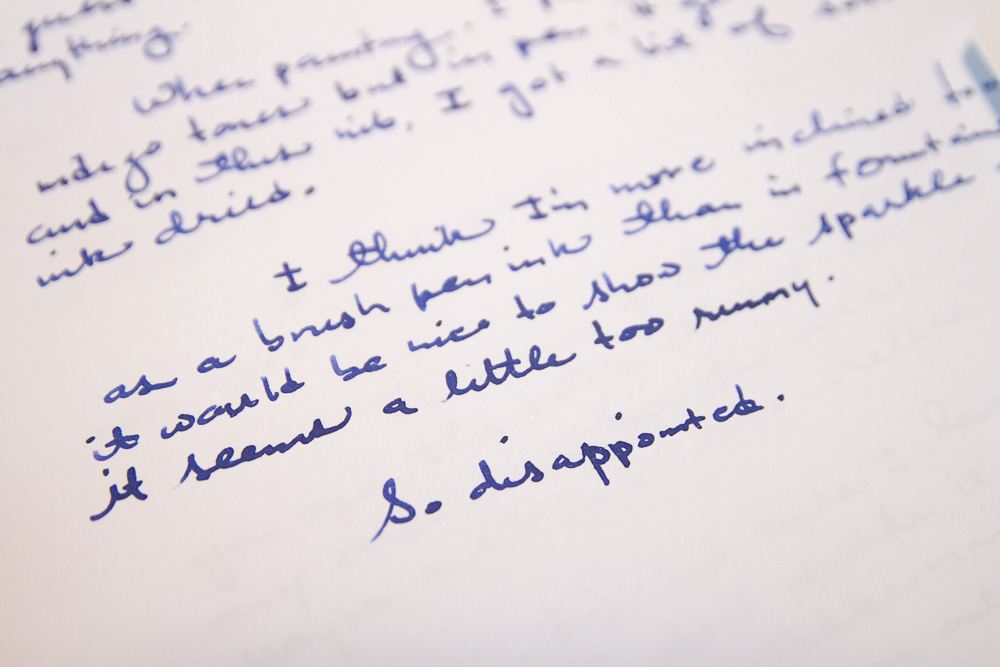 anything.
When painting, I
indigo tones but in pen it
and in this nib, I got a bit of
ink dried.
I think I'm more inclined to
as a brush pen ink than in fountain
it would be nice to show the sparkle
it seems a little too runny.
So disappointed.